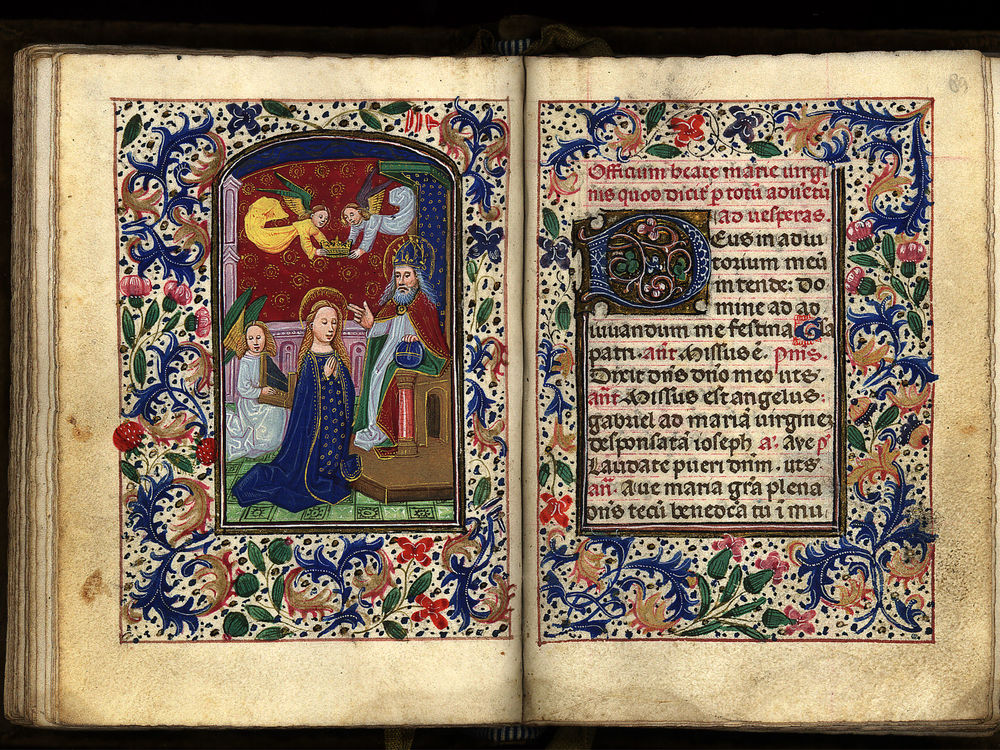 Officium beate marie virgi
nis quod dicit̃ p totũ aduẽtũ
ad uesperas.
Deus in adiu
torium meũ
intende: do
mine ad ad
iuuandum me festina Gla
patri. añt. Missus ẽ. Pms.
Dixit dñs dño meo uts.
añt. Missus est angelus
gabriel ad mariã uirginẽ
desponsatã ioseph a. aue p̃
Laudate pueri dñm. uts.
añ. Aue maria gr̃a plena
dñs tecũ benedcã tu i mu.